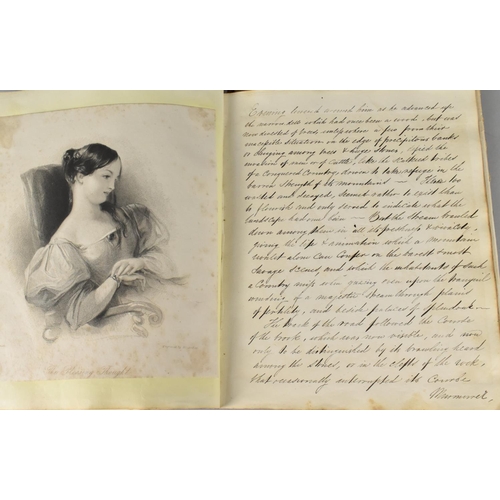 Evening lowered around him as he advanced up
the narrow dell which had once been a wood But was
now divested of trees unless where a few from their
inaccessible situation on the edge of precipitous banks
or clinging among rocks & huge stones, defied the
invasion of men or of Cattle, like the scattered tribes
of a Conquered Country, driven to take refuge in the
barren strength of its mountains — These too
wasted and decayed, seemed rather to exist than
to flourish and only served to indicate what the
landscape had once been — But the Stream brawled
down among them in all its freshness & vivacity,
giving the life & animation which a mountain
rivulet alone Can Confer on the barest & most
Savage Scenes, and which the inhabitants of Such
a Country miss when gazing even upon the tranquil
winding of a majestic Stream through plains
of fertility, and beside palaces of Splendour —
The track of the road followed the Course
of the brook, which was now visible, and now
only to be distinguished by its brawling heard
among the stones, or in the clefts of the rock,
that occasionally interrupted its Course
Murmurer,